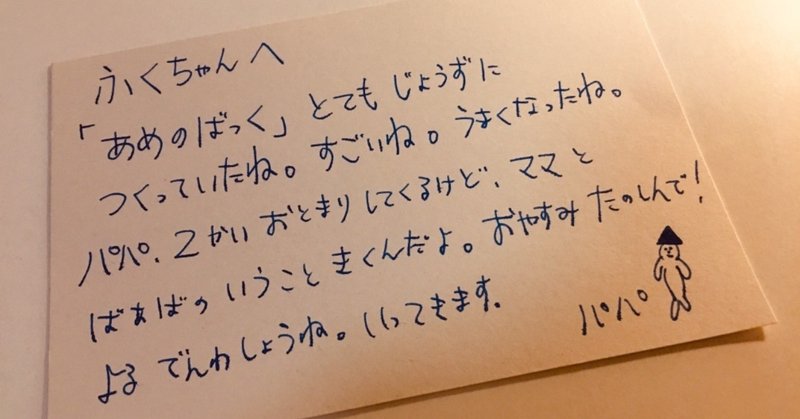 ふくちゃんへ
「あめのばっく」とてもじょうずに
つくっていたね。すごいね。うまくなったね。
パパ、2かいおとまりしてくるけど、ママと
ばぁばのいうこときくんだよ。おやすみたのしんで!
よるでんわしょうね。いってきます。
パパ